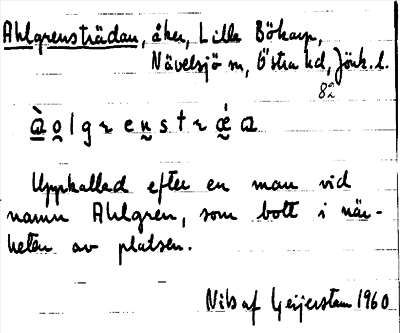 Ahlgrensträdan, åker, Lilla Bökarp,
Nävelsjö sn, Östra hd, Jönk. l.
82
Uppkallad efter en man vid
namn Ahlgren, som bott i när-
heten av platsen.
Nils af Geijerstam 1960